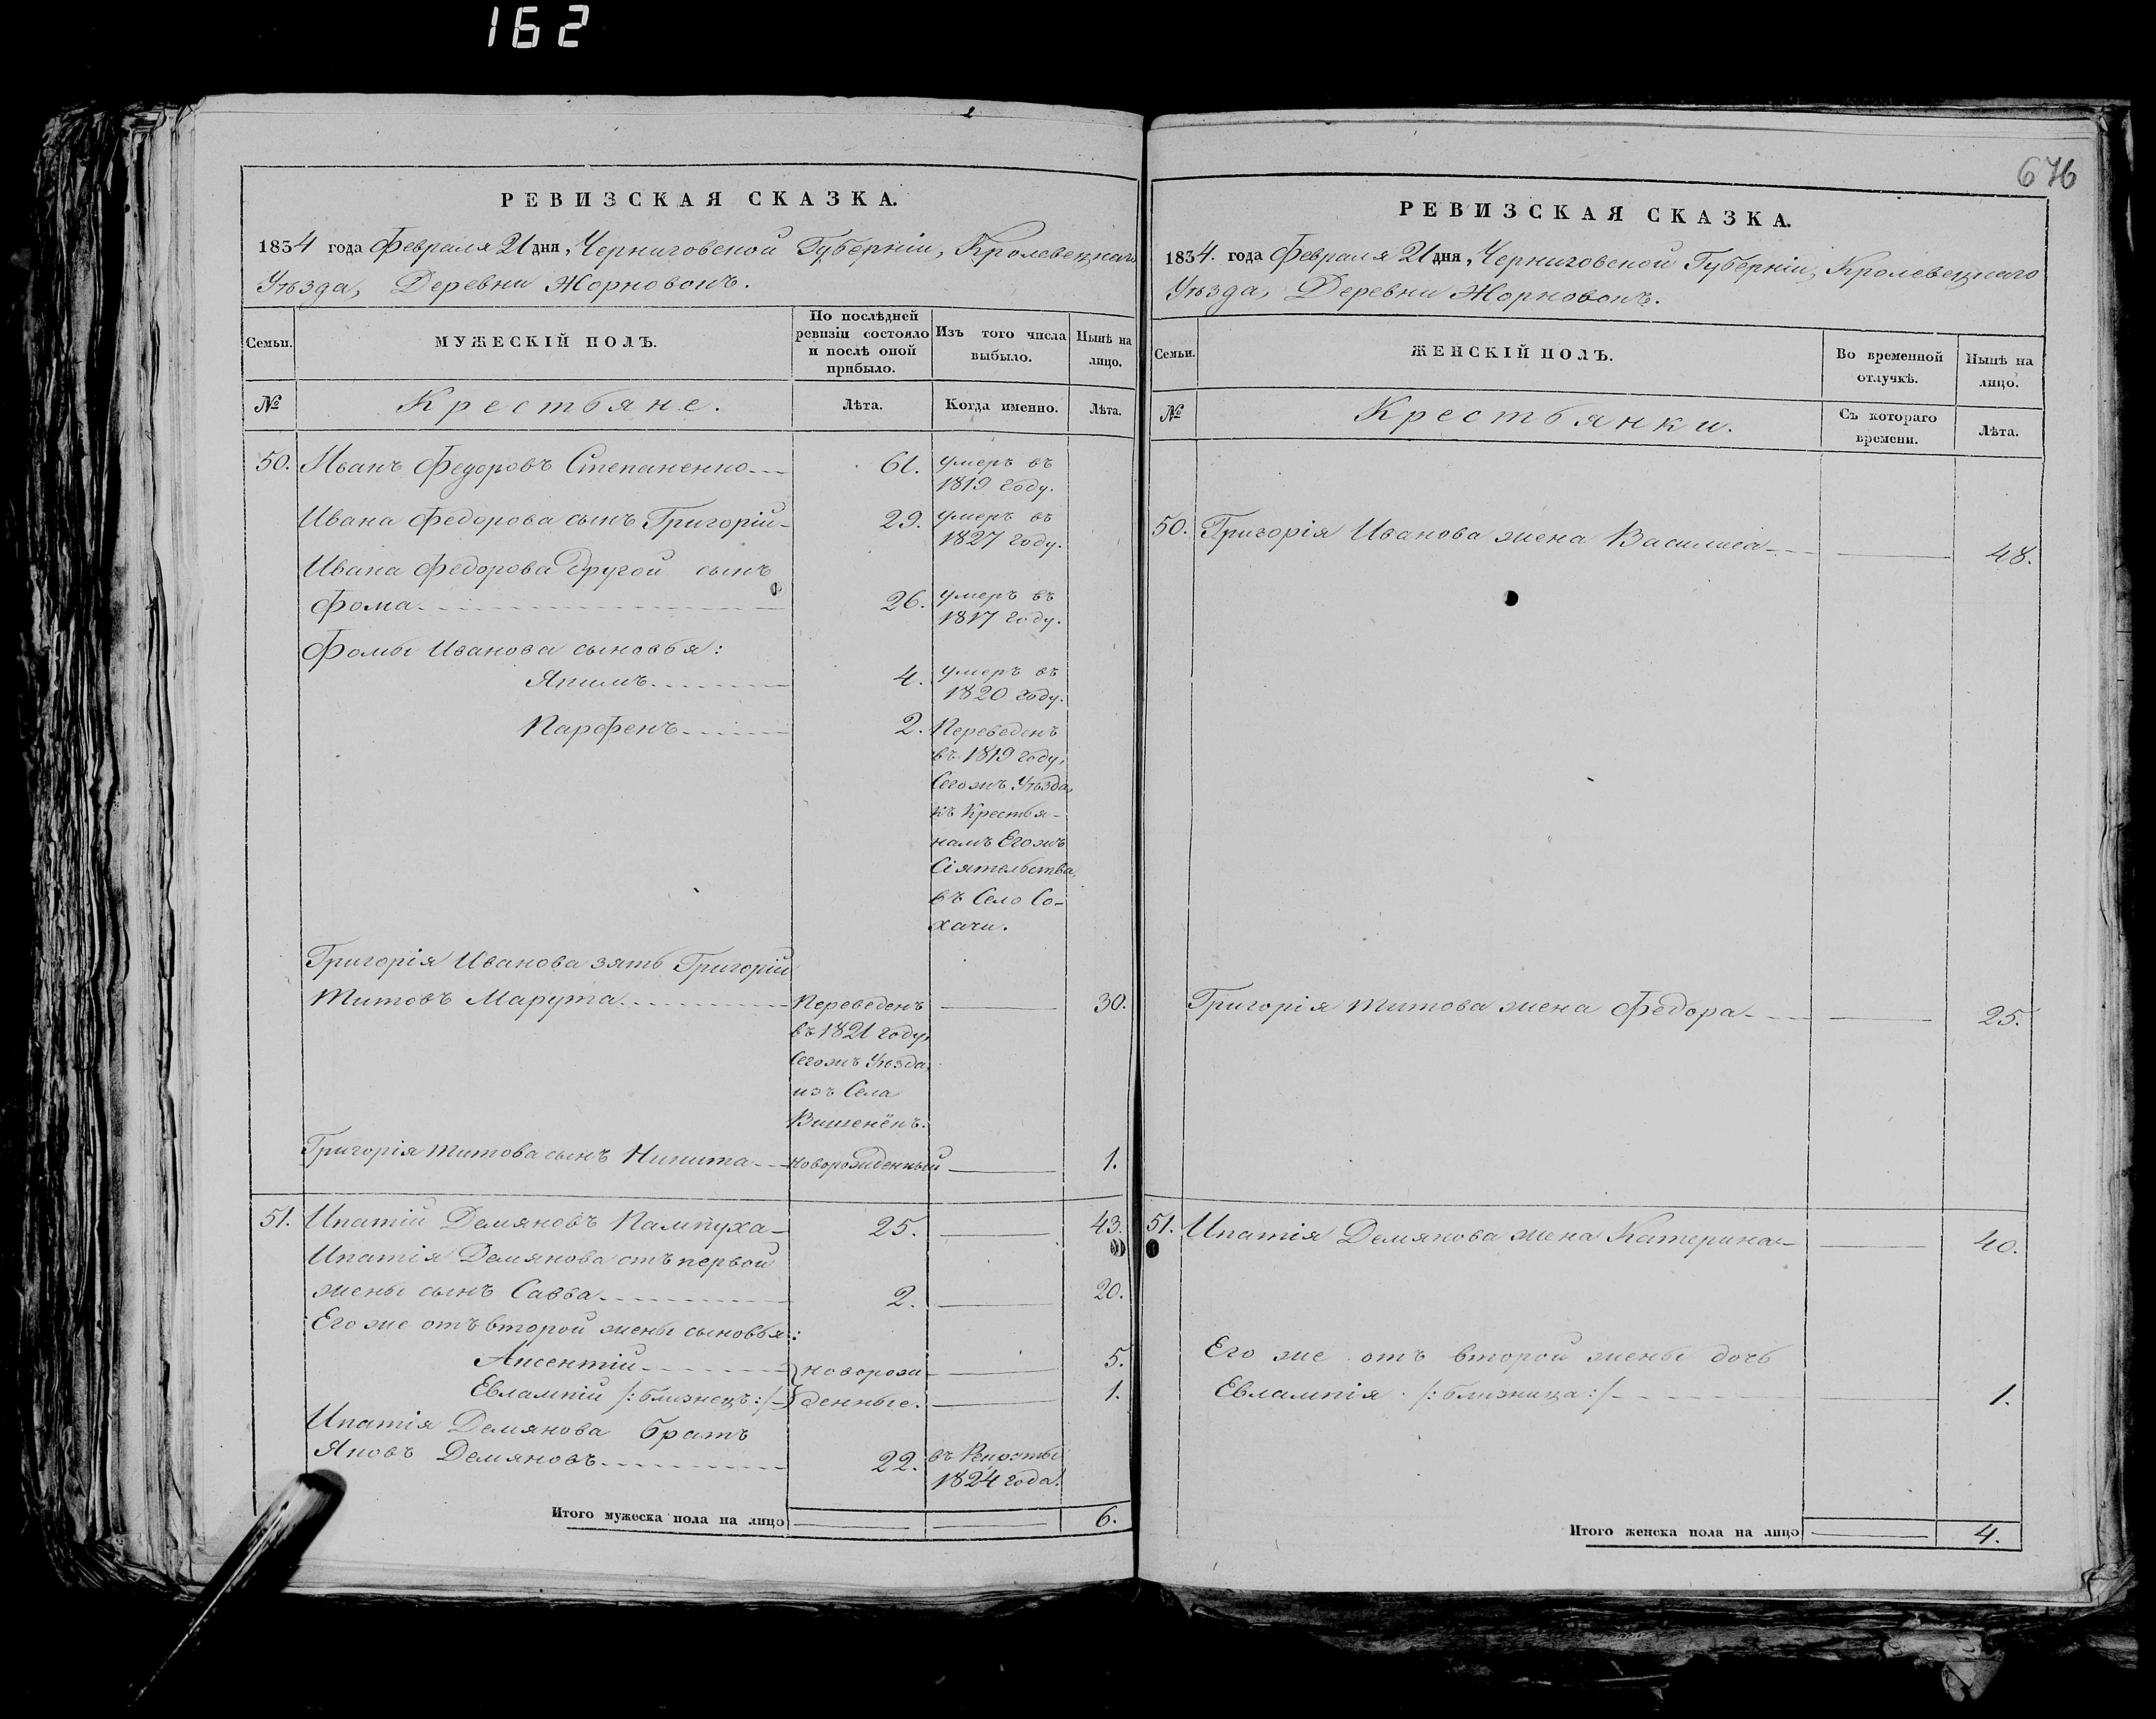 162
676
РЕВИЗСКАЯ СКАЗКА.
1834 года Февраля 21 дня, Черниговской Губерніи, Кролевецкаго
Уѣзда, Деревни Жорновокъ.
Семьи.
МУЖЕСКІЙ ПОЛЪ.
По послѣдней
ревизіи состояло
и послѣ оной
прибыло.
Изъ того числа
выбыло.
Нынѣ на
лицо.
№
Крестьяне.
Лѣта.
Когда именно.
Лѣта.
50. Иванъ Федоровъ Степаненко 61. умеръ въ
1819 году.
Ивана Федорова сынъ Григорій 29. умеръ въ
1827 году.
Ивана Федорова другой сынъ
Фома 26. умеръ въ
1817 году.
Фомы Иванова сыновья:
Якимъ 4. умеръ въ
1820 году.
Парфенъ 2. Переведенъ
въ 1819 году,
Сегожъ Уѣзда,
къ Крестья-
намъ Егожъ
Сіятельства,
въ Село Со-
хачи.
Григорія Иванова зять Григорій
Титовъ Марута Переведенъ 30.
въ 1821 году,
Сегожъ Уѣзда,
изъ Села
Вишенёкъ.
Григорія Титова сынъ Никита новорожденный 1.
51. Ипатій Демяновъ Пампуха 25. 43.
Ипатія Демянова отъ первой
жены сынъ Савва 2. 20.
Его же отъ второй жены сыновья:
Аксентій новорож- 5.
Евлампій /:близнецъ:/ денные. 1.
Ипатія Демянова братъ
Яковъ Демяновъ 22. въ Рекруты
1824 года.
Итого мужеска пола на лицо 6.
РЕВИЗСКАЯ СКАЗКА.
1834. года Февраля 21 дня, Черниговской Губерніи, Кролевецкаго
Уѣзда, Деревни Жорновокъ.
Семьи.
ЖЕНСКІЙ ПОЛЪ.
Во временной
отлучкѣ.
Нынѣ на
лицо.
№
Крестьянки.
Съ котораго
времени.
Лѣта.
50. Григорія Иванова жена Василиса 48.
Григорія Титова жена Федора 25.
51. Ипатія Демянова жена Катерина 40.
Его же отъ второй жены дочь
Евлампія /:близница:/ 1.
Итого женска пола на лицо 4.